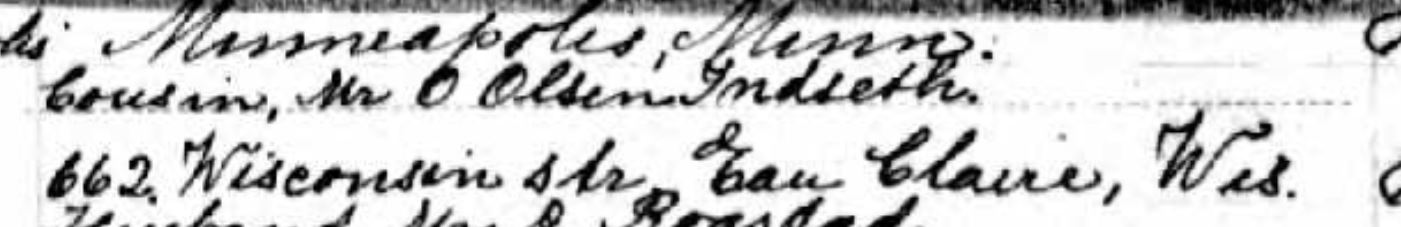 Minneapolis, Minn.
Cousin, Mr O Olsen Indseth.
662. Wisconsin str, Eau Claire, Wis.
Husband, Mr